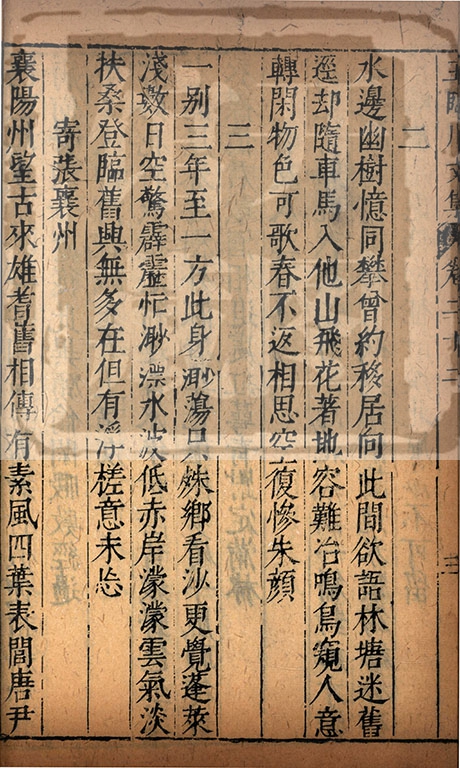 王臨川文集 卷二十二 三
二
水邊幽樹憶同攀曾約移居向此間欲語林塘迷舊
逕却隨車馬入他山飛花著地容難冶鳴鳥窺人意
轉閑物色可歌春不返相思空復慘朱顔
三
一别三年至一方此身渺蕩只殊鄉看沙更覺蓬萊
淺數日空驚霹靂忙渺漂水波低赤岸濛濛雲氣淡
扶桑登臨舊興無多在但有浮槎意未忘
寄張襄州
襄陽州望古來雄耆舊相傳有素風四葉表閭唐尹